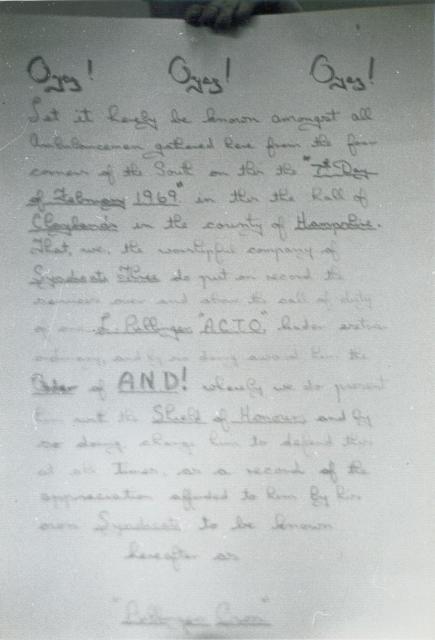 Oyez! Oyez! Oyez!
Let it hereby be known amongst all
Ambulancemen gathered here from the four
corners of the South on this the "7th Day
of February 1969" in this the Hall of
in the county of Hampshire.
That, we, the worshipful company of
Syndicate Three do put on record the
services over and above the call of duty
of one L. "A.C.T.O." leader extra-
ordinary, and by so doing award him the
Order of A.N.D! whereby we do present
him with the Shield of Honour, and by
so doing, charge him to defend this
at all Times, as a record of the
appreciation afforded to him by his
own Syndicate to be known
hereafter as